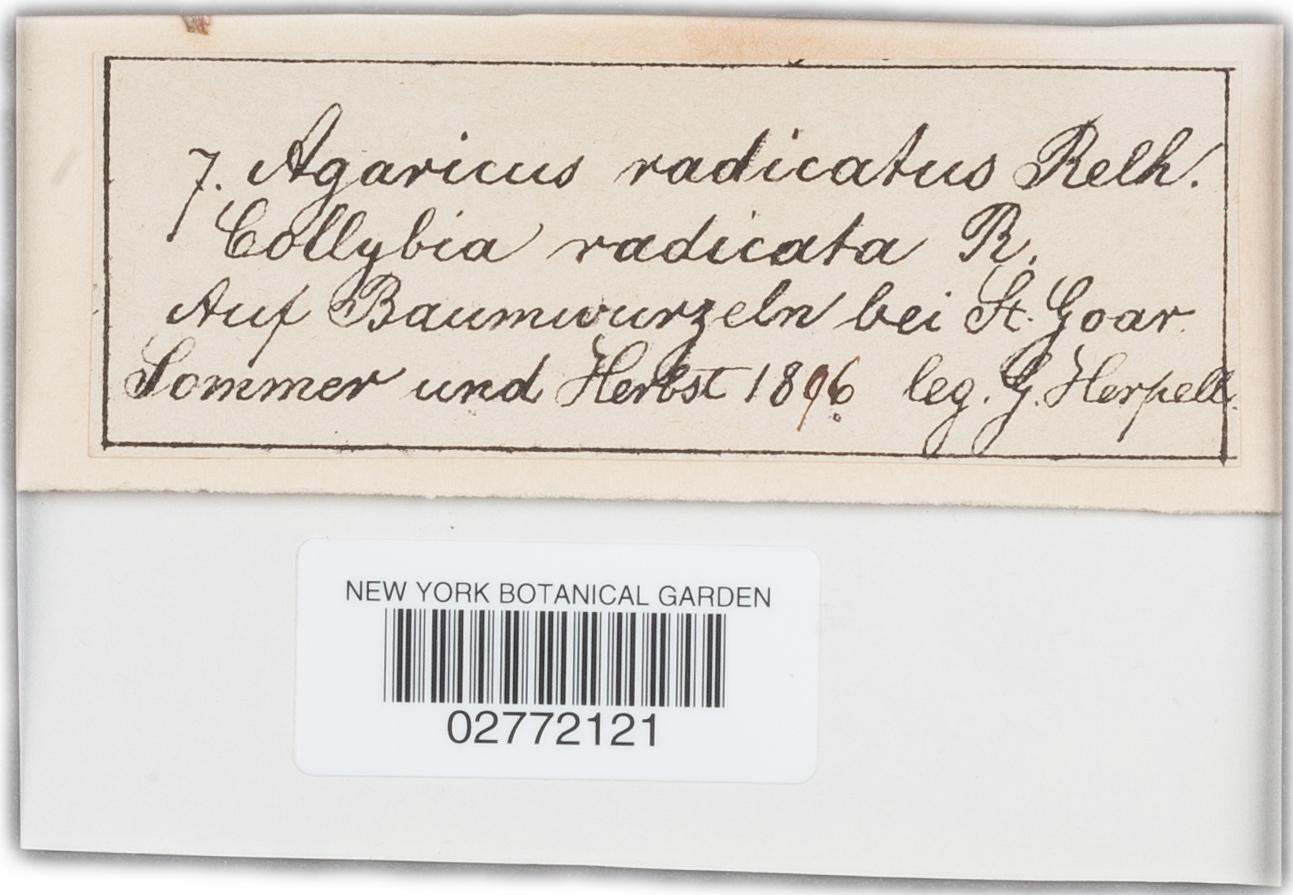 7. Agaricus radicatus Relh.
Collybia radicata R.
Auf Baumwurzeln bei St. Goar.
Sommer und Herbst 1896 leg. G. Herpell.
NEW YORK BOTANICAL GARDEN
02772121